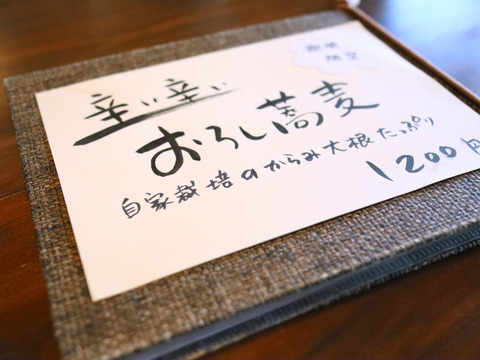 期間
限定
辛い辛い
おろし蕎麦
自家栽培のからみ大根たっぷり
1200円